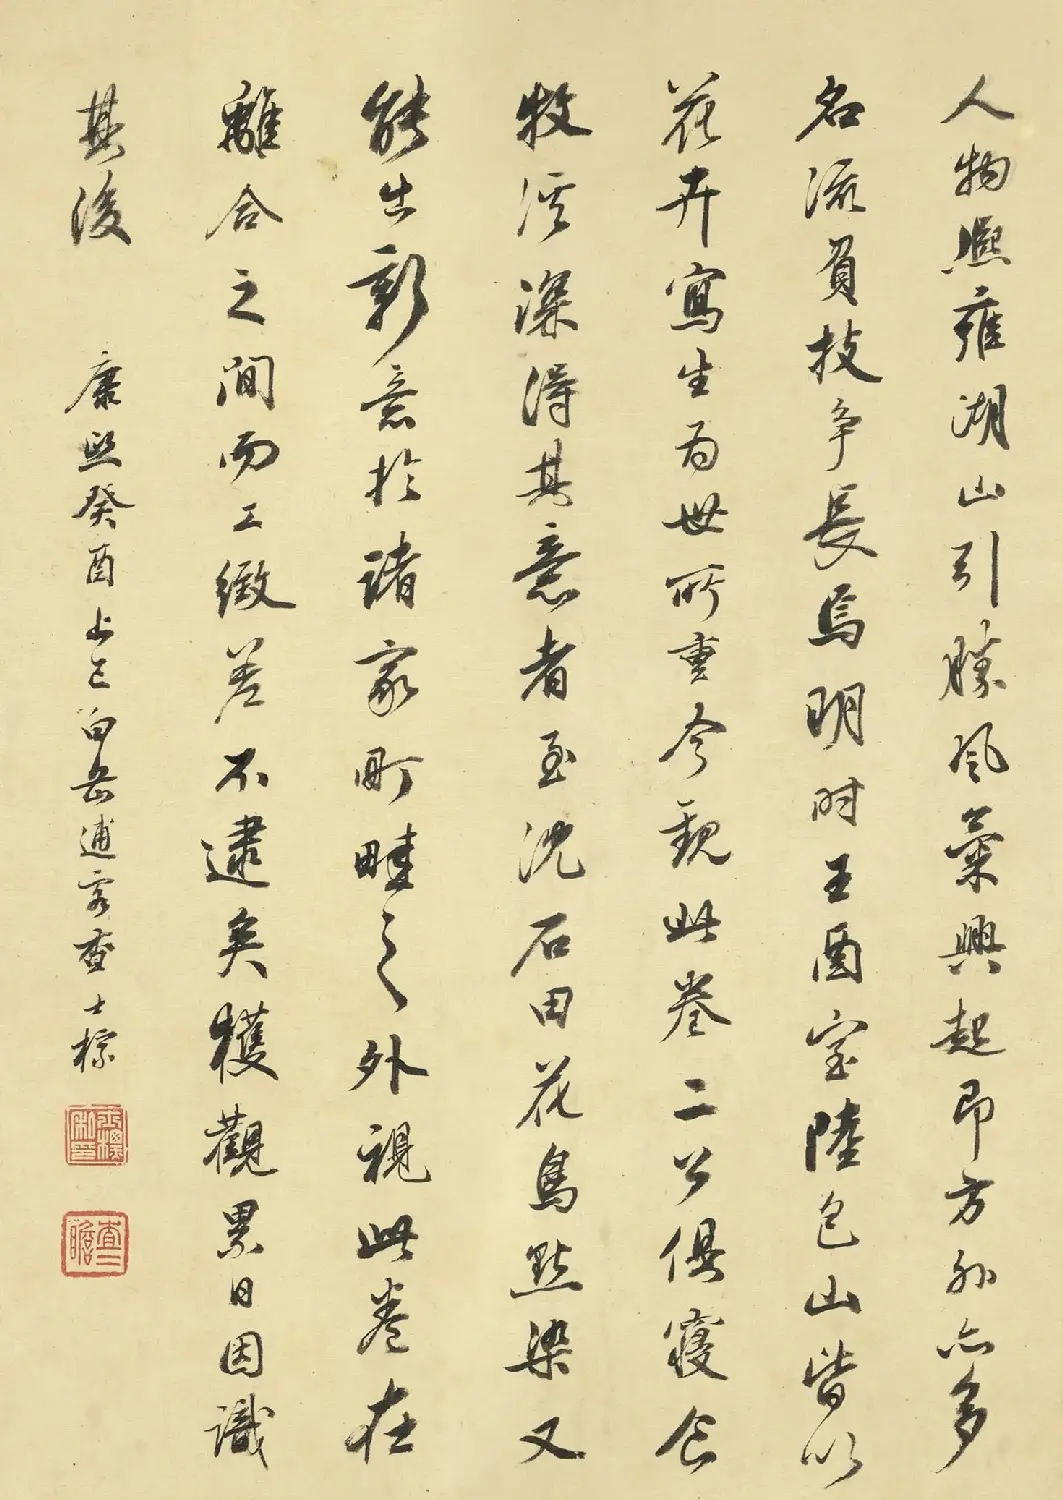 人物熙雍湖山引勝風氣興起即方外亦多
名流負技爭長焉明時王酉室陸包山皆以
花卉寫生為世所重今觀此卷二公俱寢食
牧溪深得其意者至沈石田花鳥點染又
能出新意於諸家町畦之外視此卷在
離合之間而工緻差不逮矣獲觀累日因識
其後
康熙癸酉上巳白岳逋客查士標
查二瞻